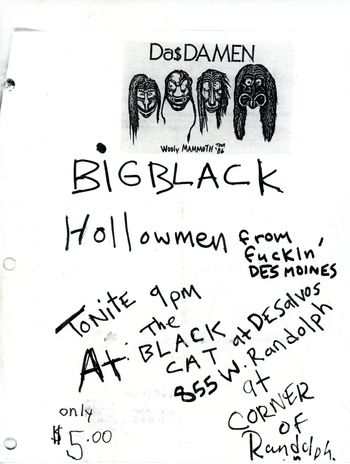 Da$ DAMEN
Wooly MAMMOTH TOUR '86
BIGBLACK
Hollowmen from
fuckin'
DES MOINES
TONITE 9pm
At: The
BLACK
CAT
at DESalvos
855 W. Randolph
at
CORNER
OF
Randolph.
only
$5.00